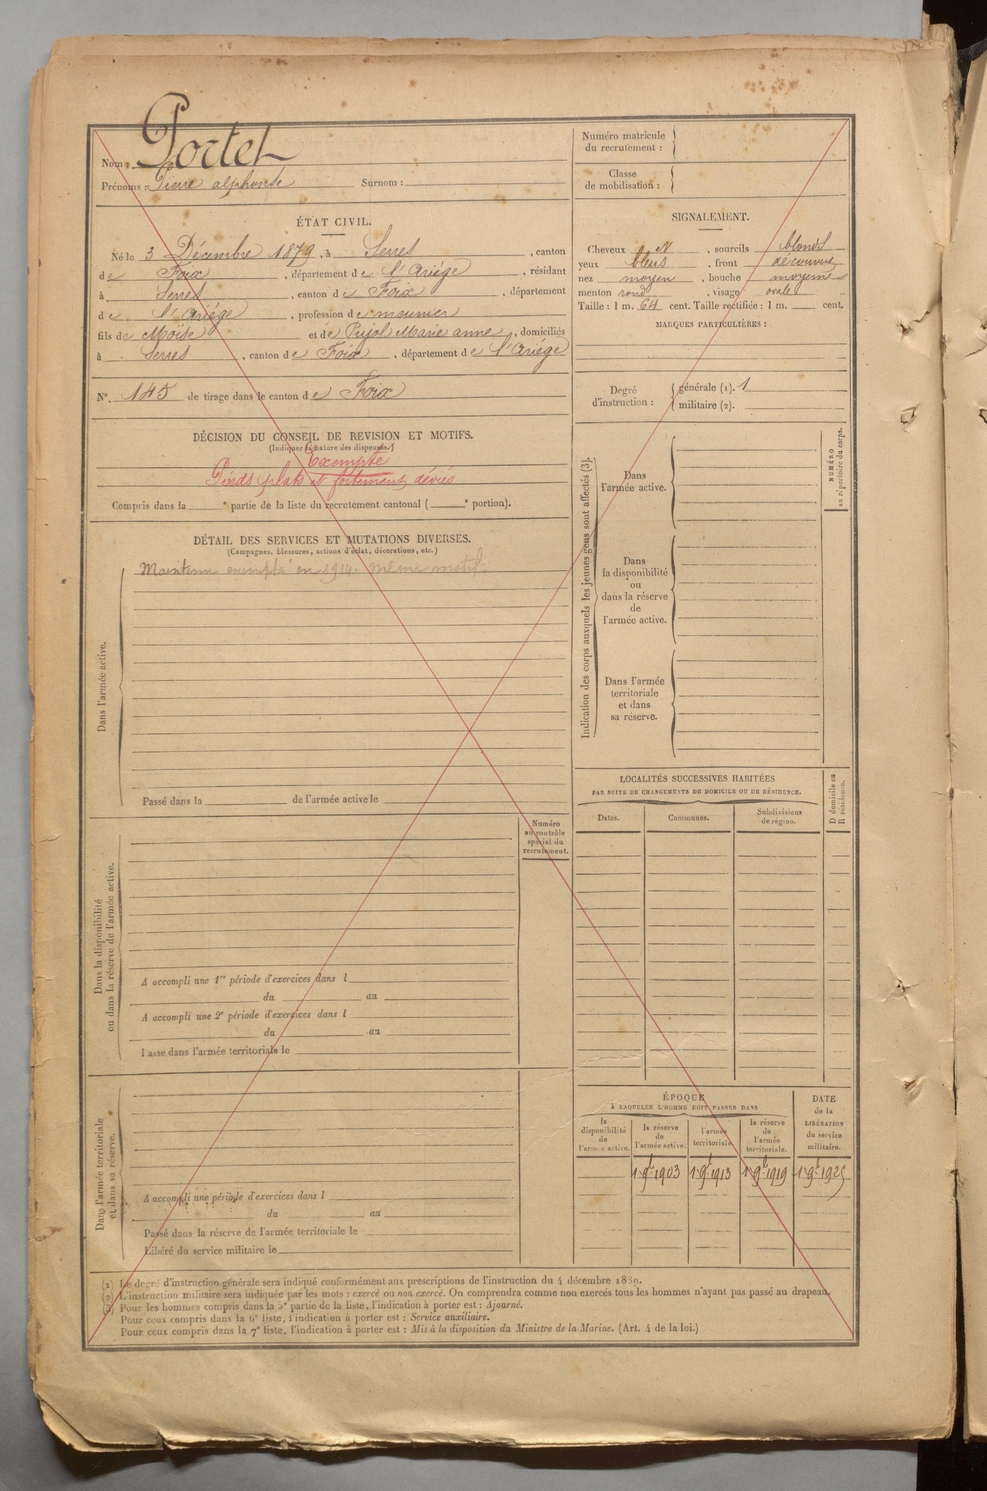 Nom : Portet
Prénoms : Pierre alphonse Surnom :
Numéro matricule du recrutement :
Classe de mobilisation :
ÉTAT CIVIL.
Né le 3 Décembre 1879, à Serres, canton
de Foix, département de l'Ariége, résidant
à Serres, canton de Foix, département
de l'Ariége, profession de meunier
fils de Moïse et de Pujol Marie anne, domiciliés
à Serres, canton de Foix, département de l'Ariége
N°. 145 de tirage dans le canton de Foix
SIGNALEMENT.
Cheveux et, sourcils blonds
yeux bleus, front découvert
nez moyen, bouche moyenne
menton rond, visage ovale
Taille : 1 m. 64 cent. Taille rectifiée : 1 m. cent.
MARQUES PARTICULIÈRES :
Degré d'instruction :
générale (1). 1
militaire (2).
DÉCISION DU CONSEIL DE REVISION ET MOTIFS.
(Indiquer la nature des dispenses.)
Exempté
Pieds plats et fortement déviés
Compris dans la e partie de la liste du recrutement cantonal ( e portion).
DÉTAIL DES SERVICES ET MUTATIONS DIVERSES.
(Campagnes, blessures, actions d'éclat, décorations, etc.)
Dans l'armée active.
Maintenu exempté en 1914. même motif.
Passé dans la de l'armée active le
Numéro au contrôle spécial du recrutement.
Dans la disponibilité ou dans la réserve de l'armée active.
A accompli une 1re période d'exercices dans l
du au
A accompli une 2e période d'exercices dans l
du au
Passé dans l'armée territoriale le
Dans l'armée territoriale et dans sa réserve.
A accompli une période d'exercices dans l
du au
Passé dans la réserve de l'armée territoriale le
Libéré du service militaire le
Indication des corps auxquels les jeunes gens sont affectés (3).
Dans l'armée active.
Dans la disponibilité ou dans la réserve de l'armée active.
Dans l'armée territoriale et dans sa réserve.
NUMÉRO au répertoire du corps.
LOCALITÉS SUCCESSIVES HABITÉES
PAR SUITE DE CHANGEMENTS DE DOMICILE OU DE RÉSIDENCE.
Dates. Communes. Subdivisions de région.
D domicile ou R résidence.
ÉPOQUE
À LAQUELLE L'HOMME DOIT PASSER DANS
la disponibilité de l'armée active.
la réserve de l'armée active.
l'armée territoriale.
la réserve de l'armée territoriale.
DATE de la LIBÉRATION du service militaire.
1 9bre 1903 1 9bre 1913 1 9bre 1919 1 9bre 1925
(1) Le degré d'instruction générale sera indiqué conformément aux prescriptions de l'instruction du 4 décembre 1889.
(2) L'instruction militaire sera indiquée par les mots : exercé ou non exercé. On comprendra comme non exercés tous les hommes n'ayant pas passé au drapeau.
(3) Pour les hommes compris dans la 5e partie de la liste, l'indication à porter est : Ajourné.
Pour ceux compris dans la 6e liste, l'indication à porter est : Service auxiliaire.
Pour ceux compris dans la 7e liste, l'indication à porter est : Mis à la disposition du Ministre de la Marine. (Art. 4 de la loi.)